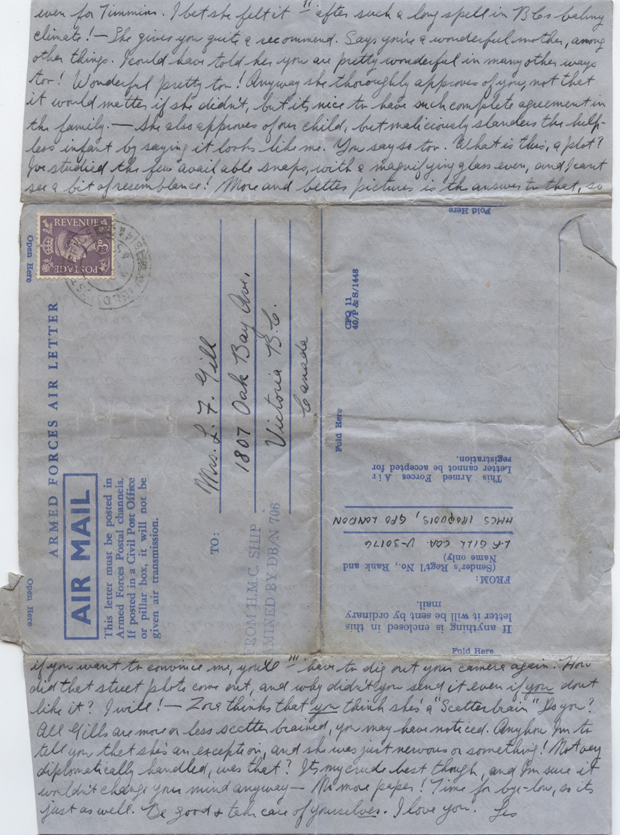 even for Timmins. I bet she felt it "' after such a long spell in B.C.s balmy
climate! — She gives you quite a recommend. Says you're a wonderful mother, among
other things. I could have told her you are pretty wonderful in many other ways
too! Wonderful pretty too! Anyway she thoroughly approves of you, not that
it would matter if she didn't, but its nice to have such complete agreement in
the family. — She also approves of our child, but maliciously slanders the help-
less infant by saying it looks like me. You say so too. What is this, a plot?
I've studied the few available snaps, with a magnifying glass even, and I cant
see a bit of resemblance! More and better pictures is the answer to that, so
Open Here
REVENUE
POSTAGE
ARMED FORCES AIR LETTER
AIR MAIL
This letter must be posted in
Armed Forces Postal channels.
If posted in a Civil Post Office
or pillar box, it will not be
given air transmission.
Open Here
TO:
Mrs. L. F. Gill
1807 Oak Bay Ave,
Victoria B.C.
Canada
FROM H.M.C. SHIP
MINED BY DB/N 706
Fold Here
GPO 11
40/P & S/1448
Fold Here
This Armed Forces Air
Letter cannot be accepted for
registration.
HMCS IROQUOIS, GPO LONDON
L.F. GILL V-30176
(Sender's Reg'l No., Rank and
Name only)
FROM:
If anything is enclosed in this
letter it will be sent by ordinary
mail.
Fold Here
if you want to convince me, you'll "' have to dig out your camera again. How
did that street photo come out, and why didn't you send it even if you dont
like it? I will! — Zora thinks that you think she's a "Scatterbrain" Do you?
All Gills are more or less scatter brained, you may have noticed. Anyhow I'm to
tell you that she's an exception, and she was just nervous or something! Not very
diplomatically handled, was that? Its my crude best though, and I'm sure it
wouldn't change your mind anyway — No more paper! Time for bye-low, so its
just as well. Be good & take care of yourselves. I love you. Les